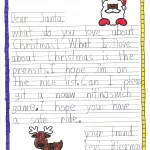 Dear Santa,
what do you love about
Christmas. What I love
about christmas is the
prensit. I hope im on
the nice list. can I ples
get a nouw niting with
game. I hope you have
a safe ride.
your frend
Levi Bierman